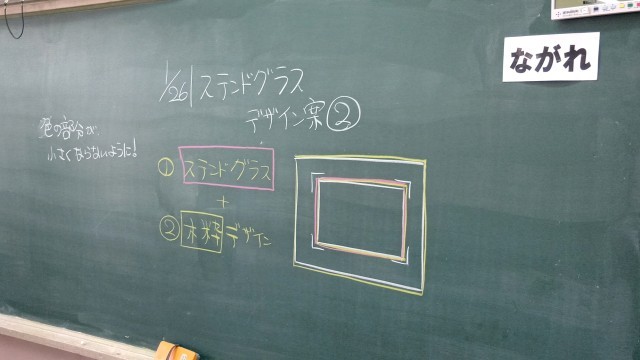 ながれ
1/26 ステンドグラス
デザイン案②
色の部分が、
小さくならないように!
① ステンドグラス
+
② 木枠デザイン